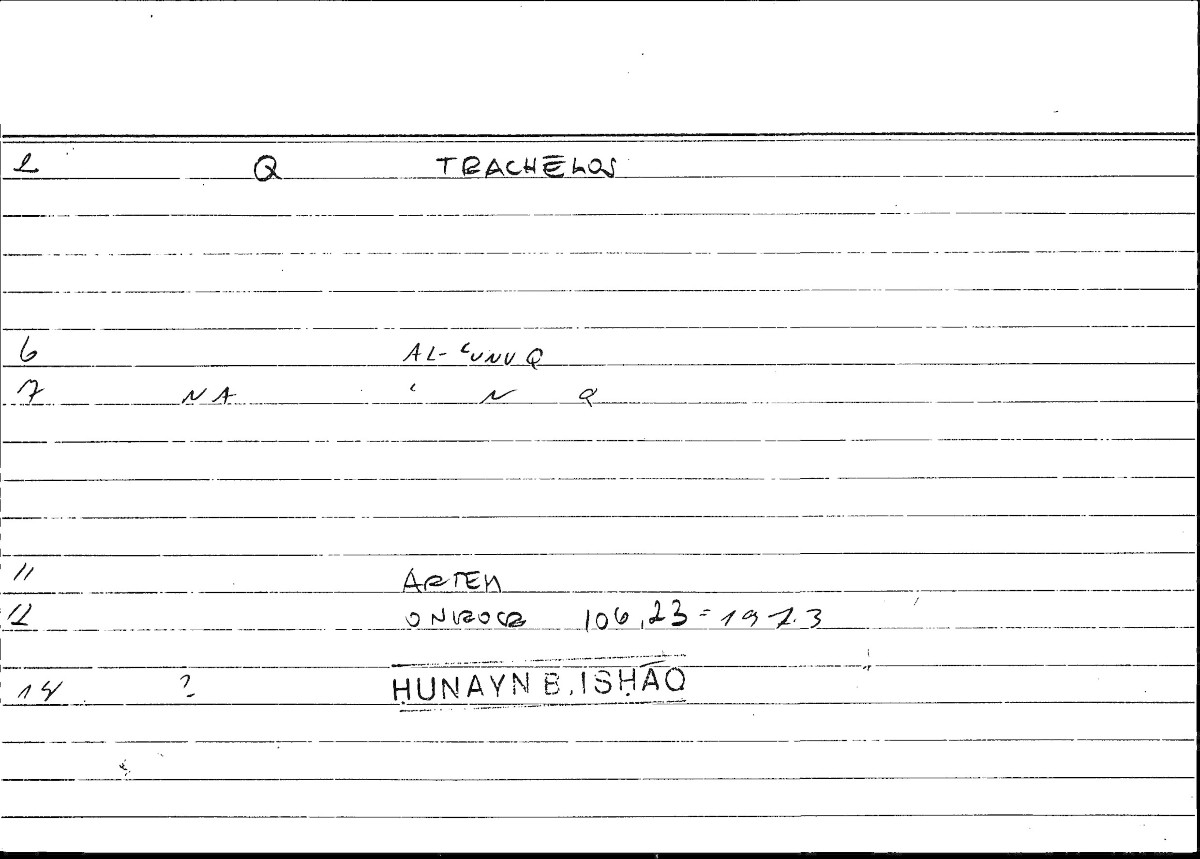 2 Q TRACHĒLOS
6 AL-ʿUNUQ
7 NA ʿ N Q
11 ARTEM
12 ONIROCR 106,23 =
14 ? ḤUNAYN B. ISḤĀQ